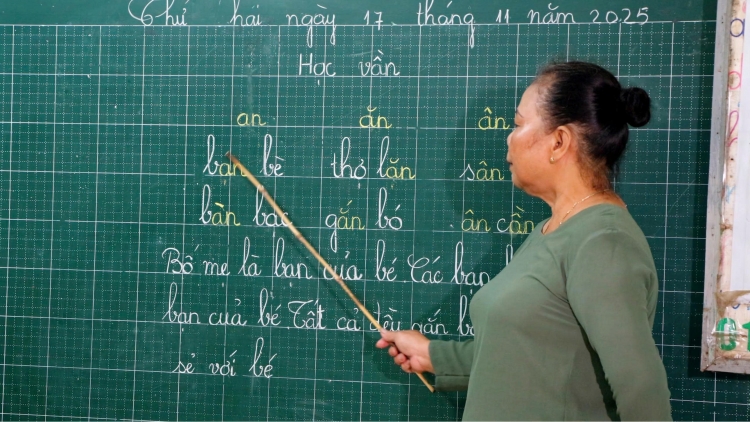 Thứ hai ngày 17 tháng 11 năm 2025
Học vần
an ăn ân
bạn bè thợ lặn sân
bàn bạc gắn bó ân cần
Bố mẹ là bạn của bé. Các bạn
bạn của bé. Tất cả đều gắn
sẻ với bé